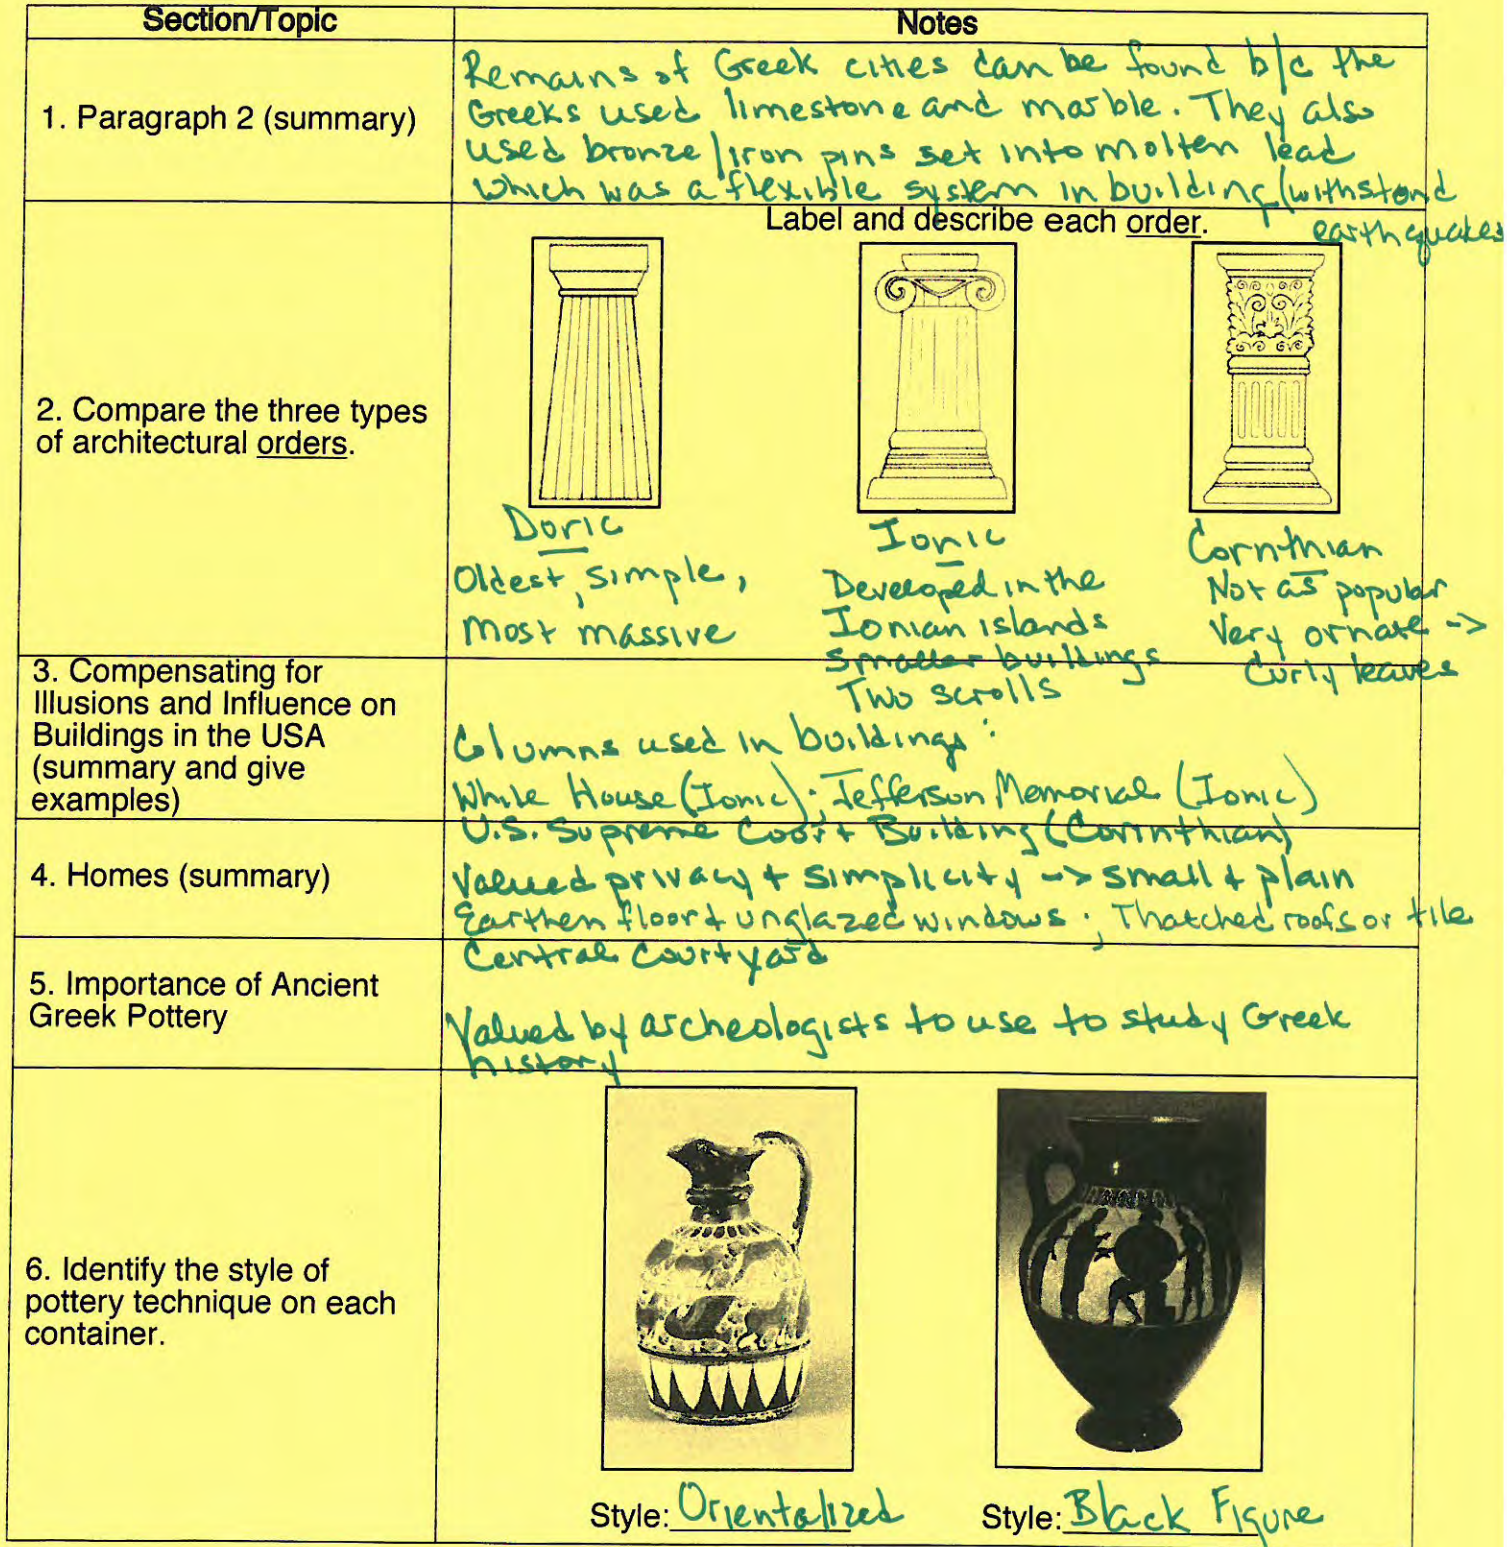 Section/Topic
Notes
1. Paragraph 2 (summary)
Remains of Greek cities can be found b/c the
Greeks used limestone and marble. They also
used bronze/iron pins set into molten lead
which was a flexible system in building (withstand
earthquakes
2. Compare the three types
of architectural orders.
Label and describe each order.
Doric
Oldest, simple,
most massive
Ionic
Developed in the
Ionian islands
Smaller buildings
Two scrolls
Cornthian
Not as popular
Very ornate ->
Curly leaves
3. Compensating for
Illusions and Influence on
Buildings in the USA
(summary and give
examples)
Columns used in buildings:
White House (Ionic); Jefferson Memorial (Ionic)
U.S. Supreme Court Building (Corinthian)
4. Homes (summary)
Valued privacy + simplicity -> small + plain
Earthen floor + unglazed windows; Thatched roofs or tile
Central Courtyard
5. Importance of Ancient
Greek Pottery
Valued by archeologists to use to study Greek
history
6. Identify the style of
pottery technique on each
container.
Style: Orientalized
Style: Black Figure